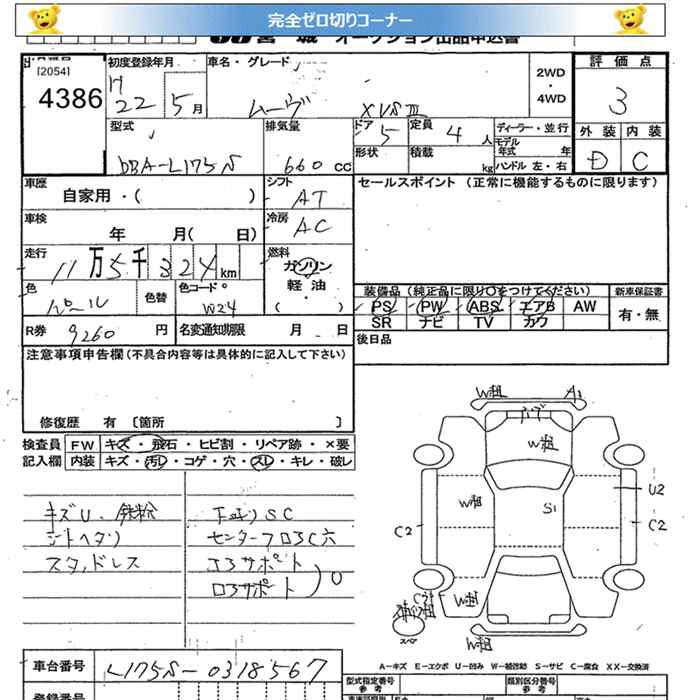 完全ゼロ切りコーナー
宮城 オークション出品申込書
[2054]
4386
初度登録年月 車名・グレード 2WD ・ 4WD 評価点
H22 5月 ムーヴ X VS III 3
型式 排気量 ドア 5 定員 4人 ディーラー・並行 外装 内装
モデル年式 年
DBA-L175S 660 CC 形状 積載 kg ハンドル 左・右 D C
車歴 自家用・( ) シフト AT セールスポイント (正常に機能するものに限ります)
車検 年 月( 日) 冷房 AC
走行 11万5千324km 燃料 ガソリン
軽油
( )
色 パール 色替 色コード W24 装備品 (純正品に限り〇をつけてください) 新車保証書
PS PW ABS エアB AW 有・無
SR ナビ TV カワ
R券 9260円 名変通知期限 月 日 後日品
注意事項申告欄 (不具合内容等は具体的に記入して下さい)
修復歴 有 〔箇所 〕
検査員 FW キズ・飛石・ヒビ割・リペア跡・×要
記入欄 内装 キズ・汚レ・コゲ・穴・スレ・キレ・破レ
キズU・鉄粉 下回りSC
シートヘタリ センターフロアC穴
スタッドレス コアサポート
ロアサポート
W祖 A1
W祖
W祖 S1 U2
C2 C2
W祖
スペア
W祖
A-キズ E-エクボ U-凹み W-補修跡 S-サビ C-腐食 XX-交換済
車台番号 L175S-0318567
型式指定番号 参考 類別区分番号 参考
登録番号